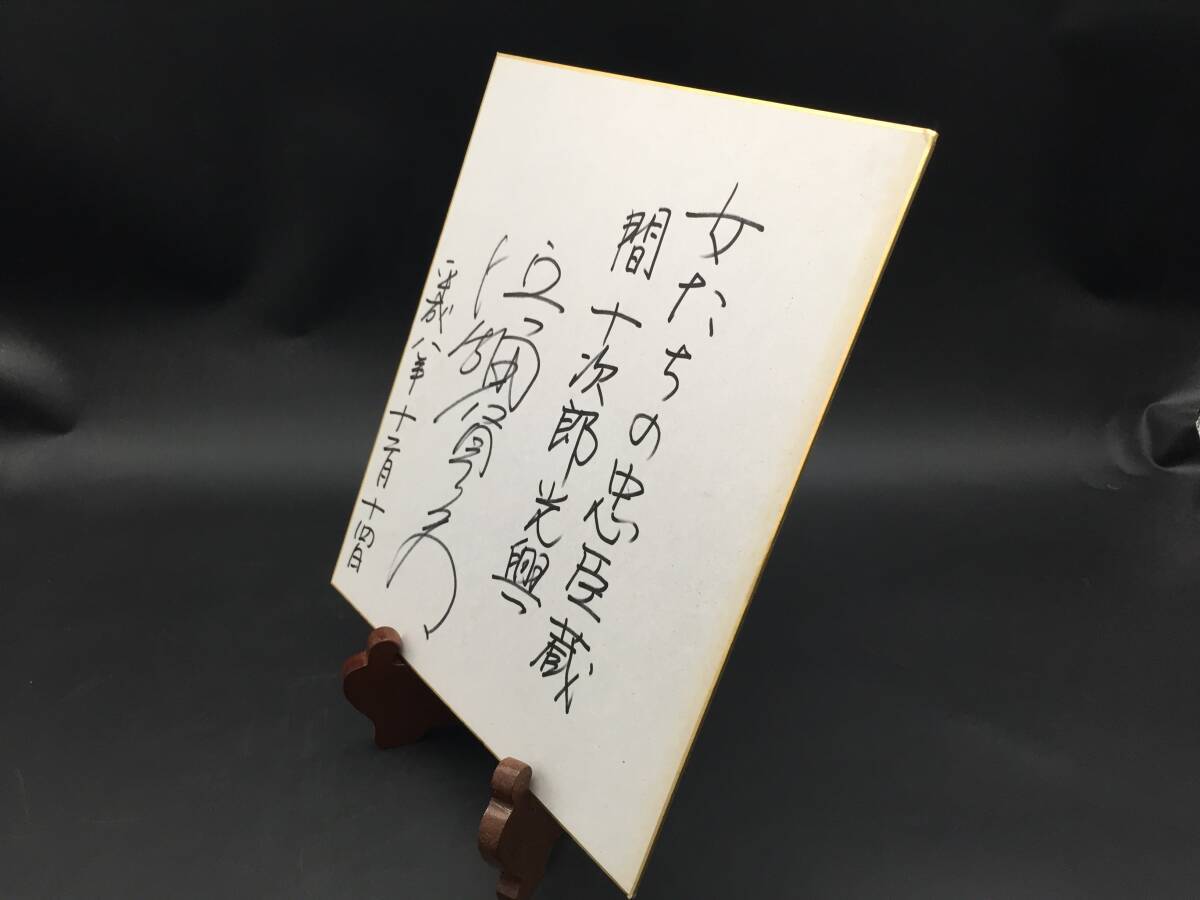 女たちの忠臣蔵
間 十次郎光興
平成八年十二月十四日